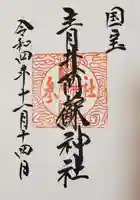 国宝
青井阿蘇神社
令和四年十一月十四日